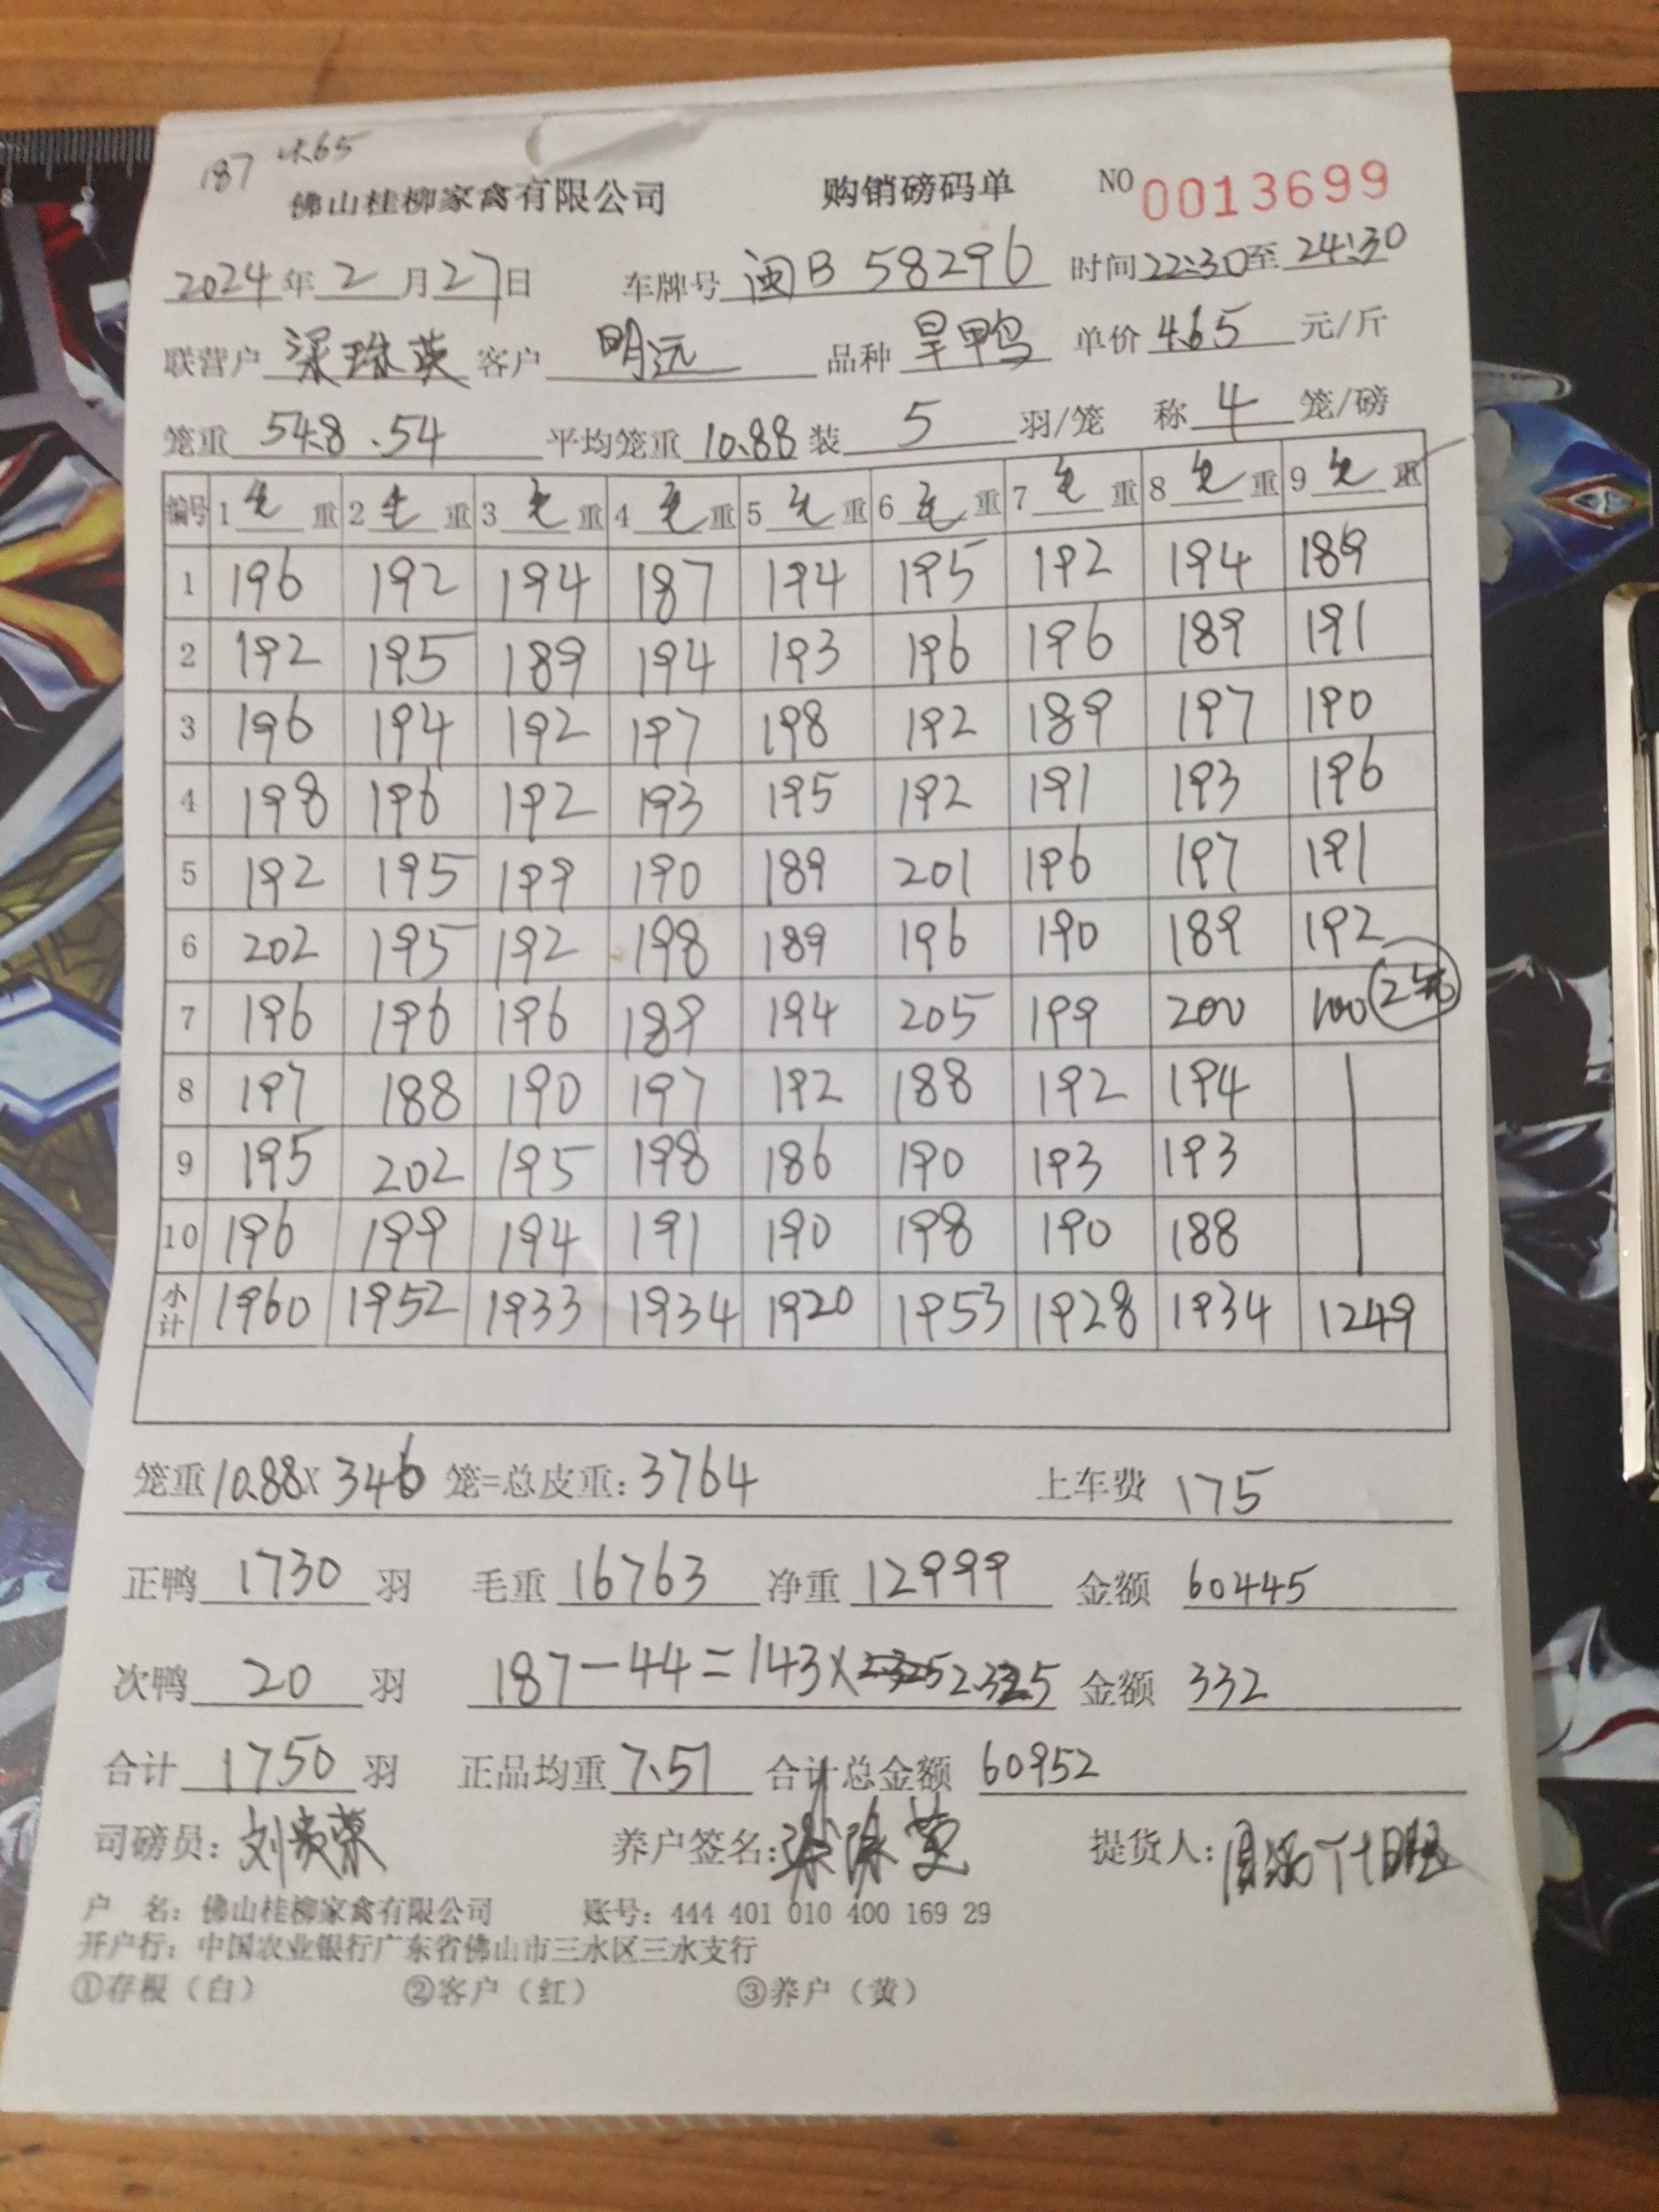 187 4.65
佛山桂柳家禽有限公司 购销磅码单 NO 0013699
2024年2月27日 车牌号 闽B 58296 时间22:30至24:30
联营户 梁珠英 客户 明远 品种 旱鸭 单价 4.65 元/斤
笼重 54.8 .54 平均笼重 10.88 装 5 羽/笼 称 4 笼/磅
编号 1毛重 2毛重 3毛重 4毛重 5毛重 6毛重 7毛重 8毛重 9毛重
1 196 192 194 187 194 195 192 194 189
2 192 195 189 194 193 196 196 189 191
3 196 194 192 197 198 192 189 197 190
4 198 196 192 193 195 192 191 193 196
5 192 195 199 190 189 201 196 197 191
6 202 195 192 198 189 196 190 189 192
7 196 196 196 189 194 205 199 200 100 2笼
8 197 188 190 197 192 188 192 194
9 195 202 195 198 186 190 193 193
10 196 199 194 191 190 198 190 188
小计 1960 1952 1933 1934 1920 1953 1928 1934 1249
笼重10.88X 346 笼=总皮重:3764 上车费 175
正鸭 1730 羽 毛重 16763 净重 12999 金额 60445
次鸭 20 羽 187-44=143X 2.325 金额 332
合计 1750 羽 正品均重 7.51 合计总金额 60952
司磅员: 刘贵荣 养户签名: 梁珠英 提货人:
户 名: 佛山桂柳家禽有限公司 账号: 444 401 010 400 169 29
开户行: 中国农业银行广东省佛山市三水区三水支行
①存根(白) ②客户(红) ③养户(黄)